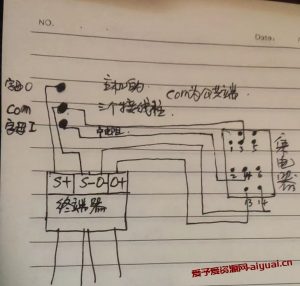 NO.
Date.
字母O
主机的
COM为公共端
com
三个接线柱
字母I
电阻
S+ S- O- O+
终端器
继电器
13 14
爱子爱资源网-aiyuai.cn